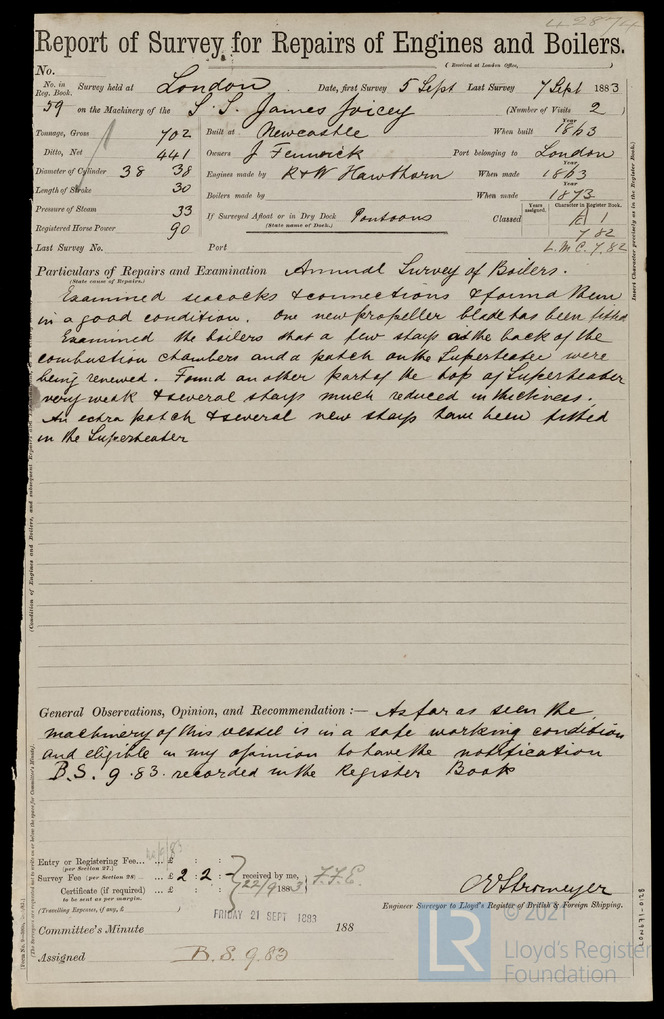 42874
Report of Survey for Repairs of Engines and Boilers.
(Received at London Office, )
No.
No. in Reg. Book. Survey held at London Date, first Survey 5 Sept Last Survey 7 Sept 1883
59 on the Machinery of the S.S. James Joicey (Number of Visits 2 )
Tonnage, Gross 702 Built at Newcastle When built Year 1863
Ditto, Net 441 Owners J Fenwick Port belonging to London
Diameter of Cylinder 38 38 Engines made by R & W Hawthorn When made Year 1863
Length of Stroke 30 Boilers made by When made Year 1873
Pressure of Steam 33 If Surveyed Afloat or in Dry Dock Pontoons Classed Years assigned. Character in Register Book. A 1
(State name of Dock.) 7.82
Registered Horse Power 90
Last Survey No. Port L.M.C. 7.82
Particulars of Repairs and Examination Annual Survey of Boilers.
(State cause of Repairs.)
Examined seacocks & connections & found them
in a good condition. One new propeller blade has been fitted
Examined the boilers that a few stays at the back of the
combustion chambers and a patch on the Superheater were
being renewed. Found another part of the top of Superheater
very weak & several stays much reduced in thickness.
An extra patch & several new stays have been fitted
in the Superheater
General Observations, Opinion, and Recommendation :— As far as seen the
machinery of this vessel is in a safe working condition
and eligible in my opinion to have the notification
B.S. 9.83. recorded in the Register Book
Entry or Registering Fee... ... £ : :
(per Section 27.)
Survey Fee (per Section 28) ... £ 2 : 2 : - received by me,
22/9 1883 F.F.E.
Certificate (if required) ... £ : :
to be sent as per margin.
(Travelling Expenses, if any, £ )
FRIDAY 21 SEPT 1883
Engineer Surveyor to Lloyd's Register of British & Foreign Shipping.
Committee's Minute 188
Assigned B.S. 9.83
Insert Character precisely as in the Register Book.
LON671-0128
LR
© 2021
Lloyd's Register
Foundation